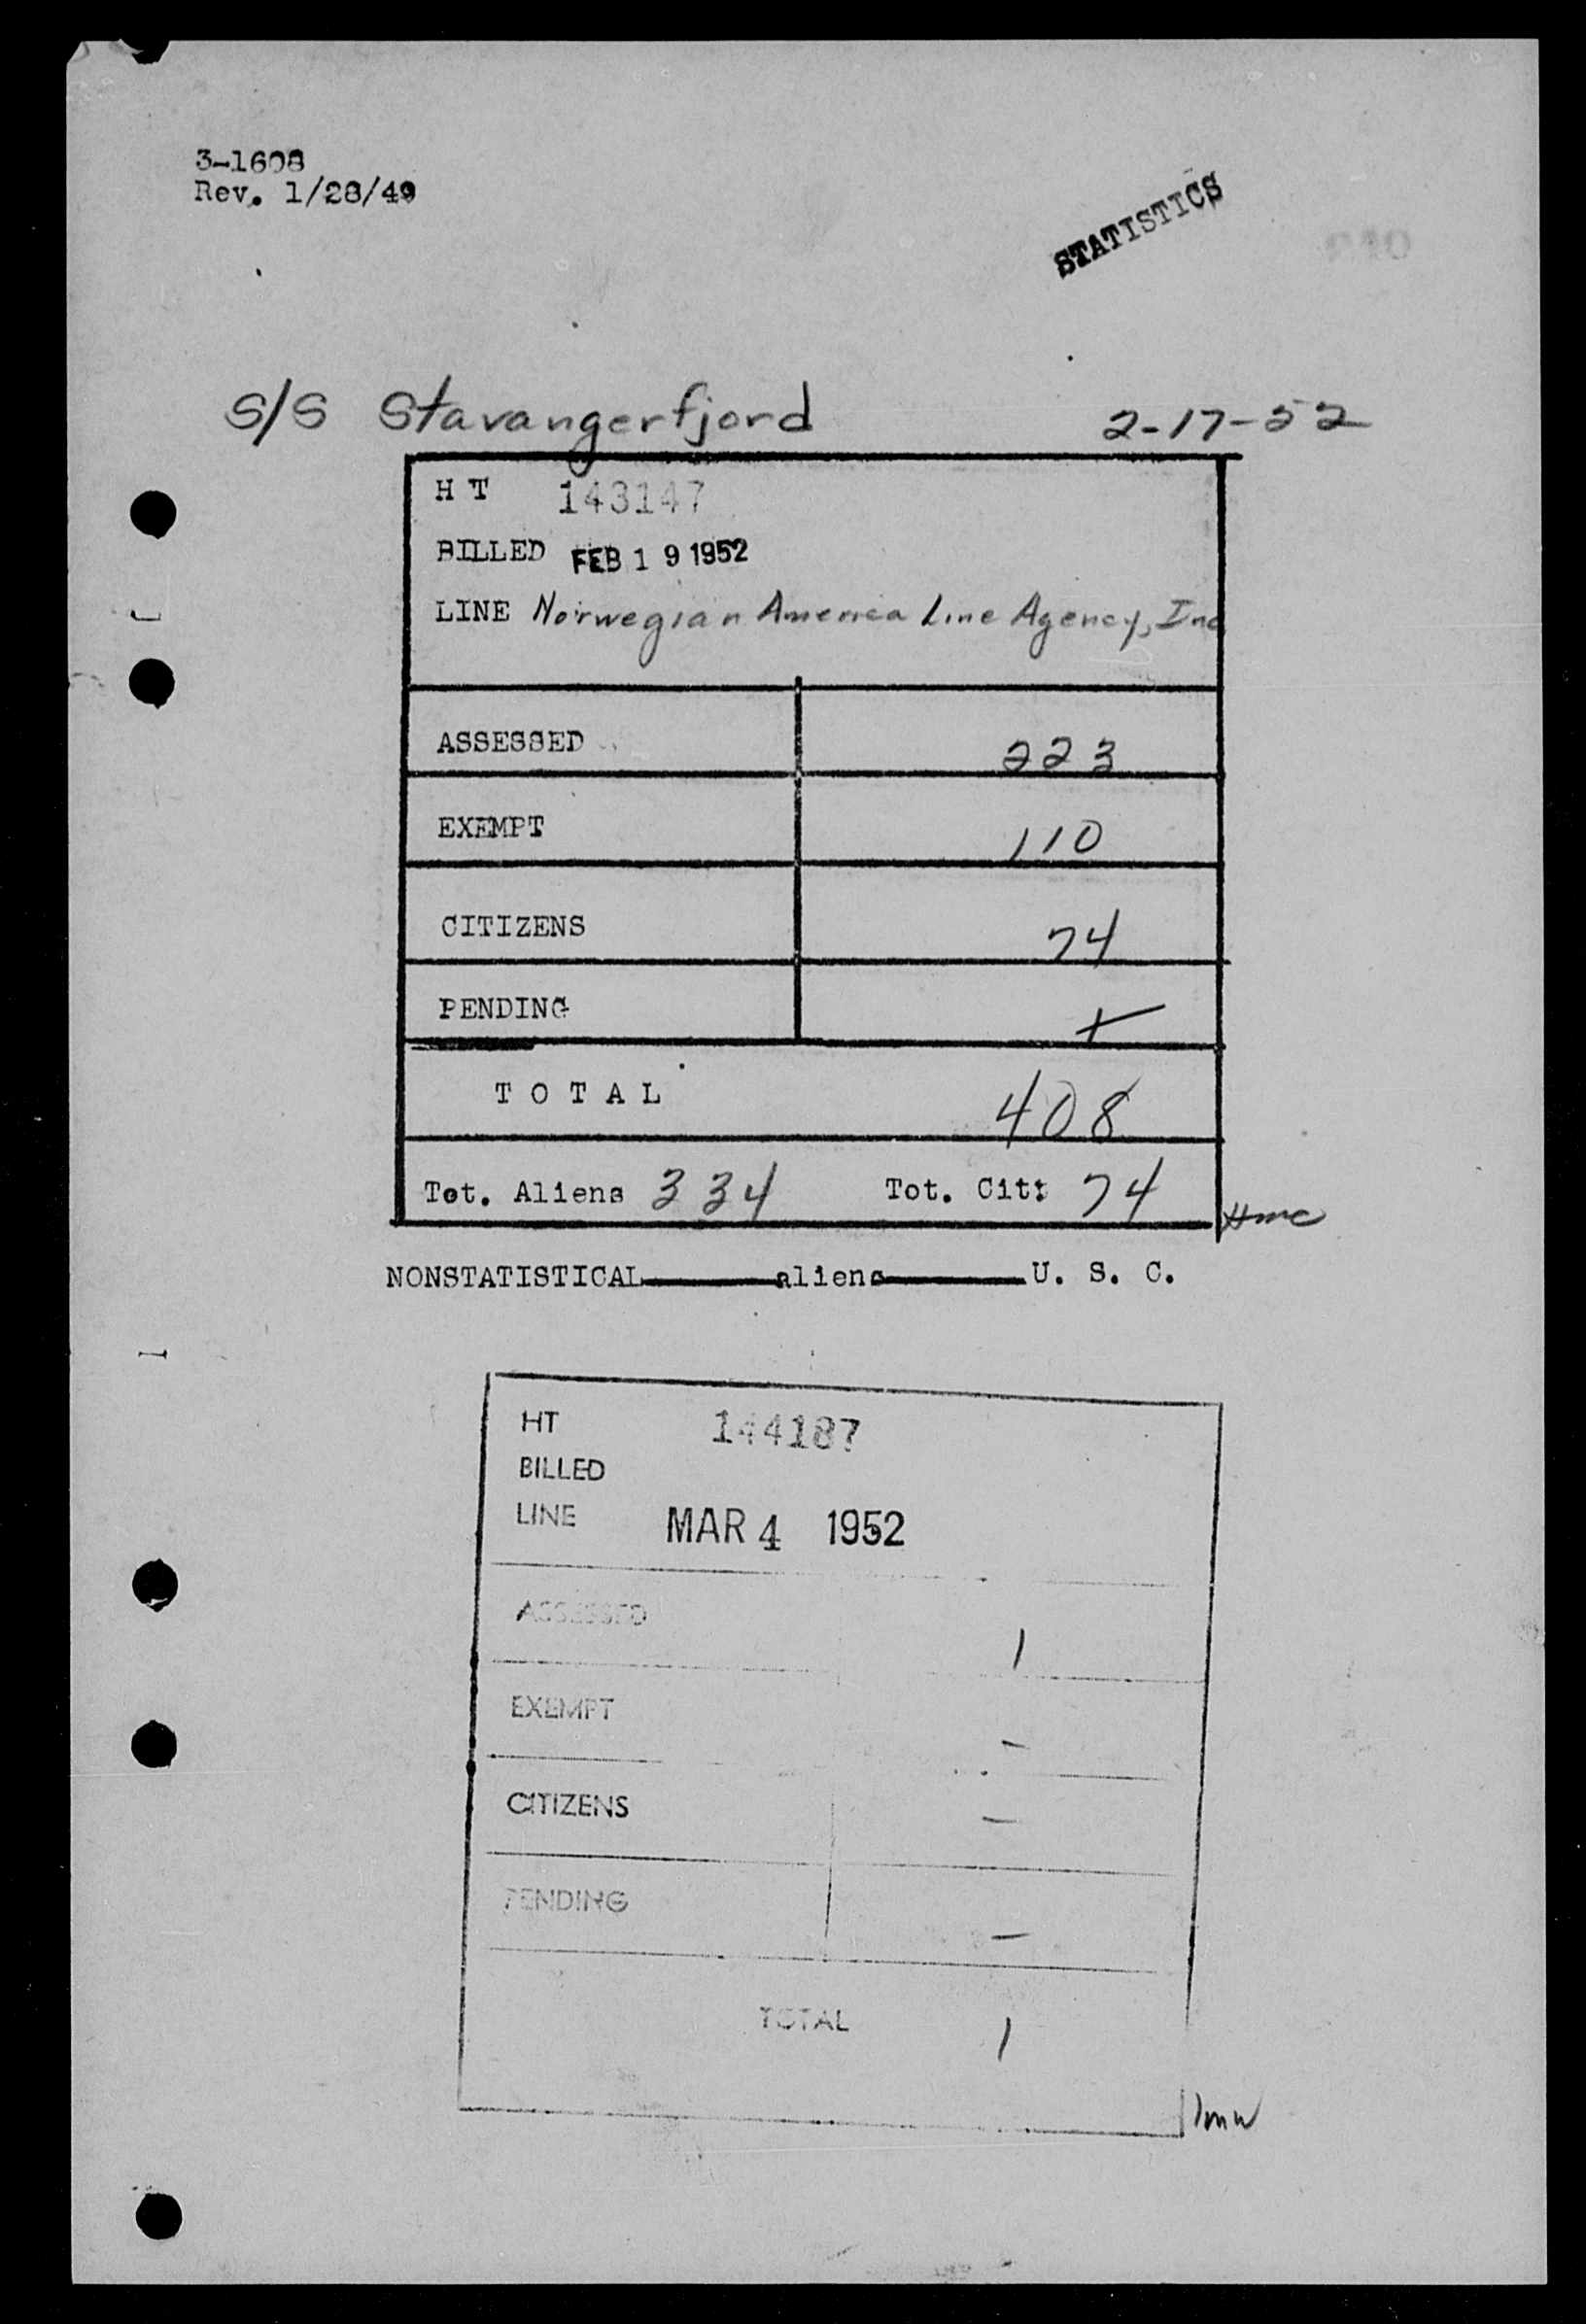 3-1608
Rev. 1/28/49
STATISTICS
S/S Stavangerfjord 2-17-52
H T 143147
BILLED FEB 19 1952
LINE Norwegian America Line Agency, Inc
ASSESSED 223
EXEMPT 110
CITIZENS 74
PENDING
TOTAL 408
Tot. Aliens 334 Tot. Cit: 74
NONSTATISTICAL aliens U. S. C.
HT 144187
BILLED
LINE MAR 4 1952
ASSESSED 1
EXEMPT -
CITIZENS -
PENDING -
TOTAL 1